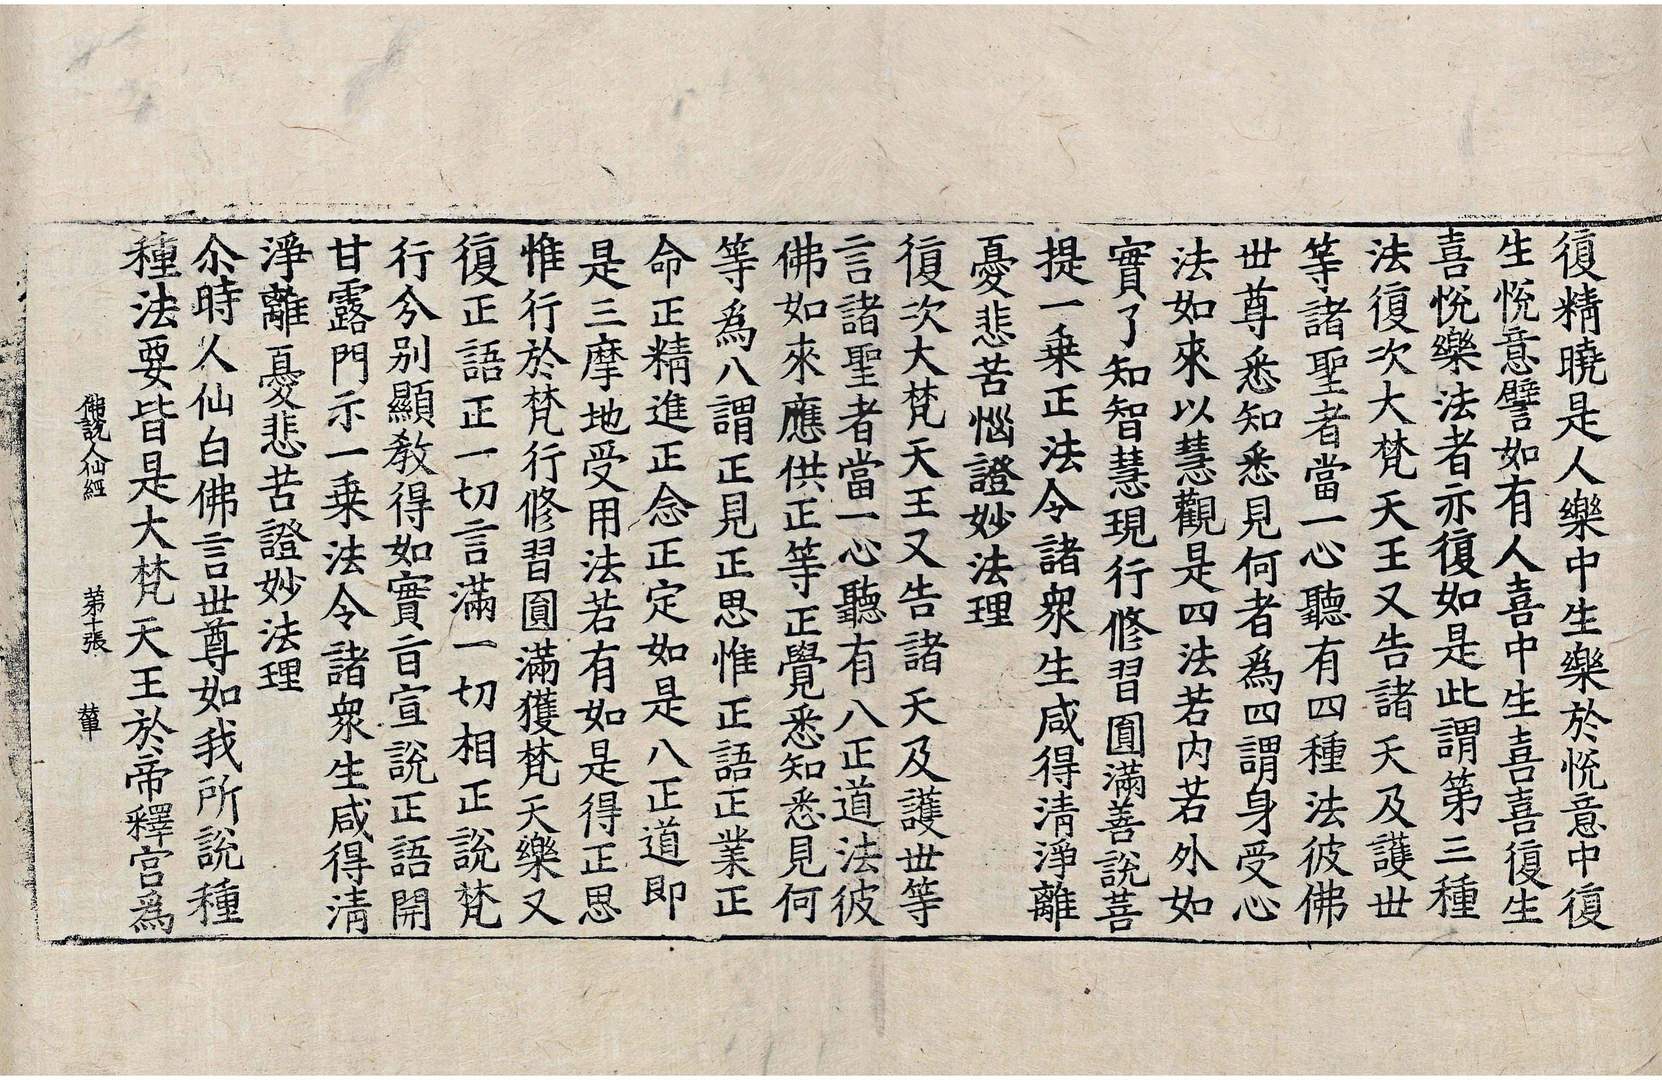 復精曉是人樂中生樂於悅意中復
生悅意譬如有人喜中生喜喜復生
喜悅樂法者亦復如是此謂第三種
法復次大梵天王又告諸天及護世
等諸聖者當一心聽有四種法彼佛
世尊悉知悉見何者爲四謂身受心
法如來以慧觀是四法若内若外如
實了知智慧現行修習圓滿善說菩
提一乗正法令諸衆生咸得清淨離
憂悲苦惱證妙法理
復次大梵天王又告諸天及護世等
言諸聖者當一心聽有八正道法彼
佛如來應供正等正覺悉知悉見何
等爲八謂正見正思惟正語正業正
命正精進正念正定如是八正道即
是三摩地受用法若有如是得正思
惟行於梵行修習圓滿獲梵天樂又
復正語正一切言滿一切相正說梵
行分別顯教得如實旨宣說正語開
甘露門示一乗法令諸衆生咸得清
淨離憂悲苦證妙法理
尒時人仙白佛言世尊如我所說種
種法要皆是大梵天王於帝釋宮爲
佛說人仙經 第十張 輦